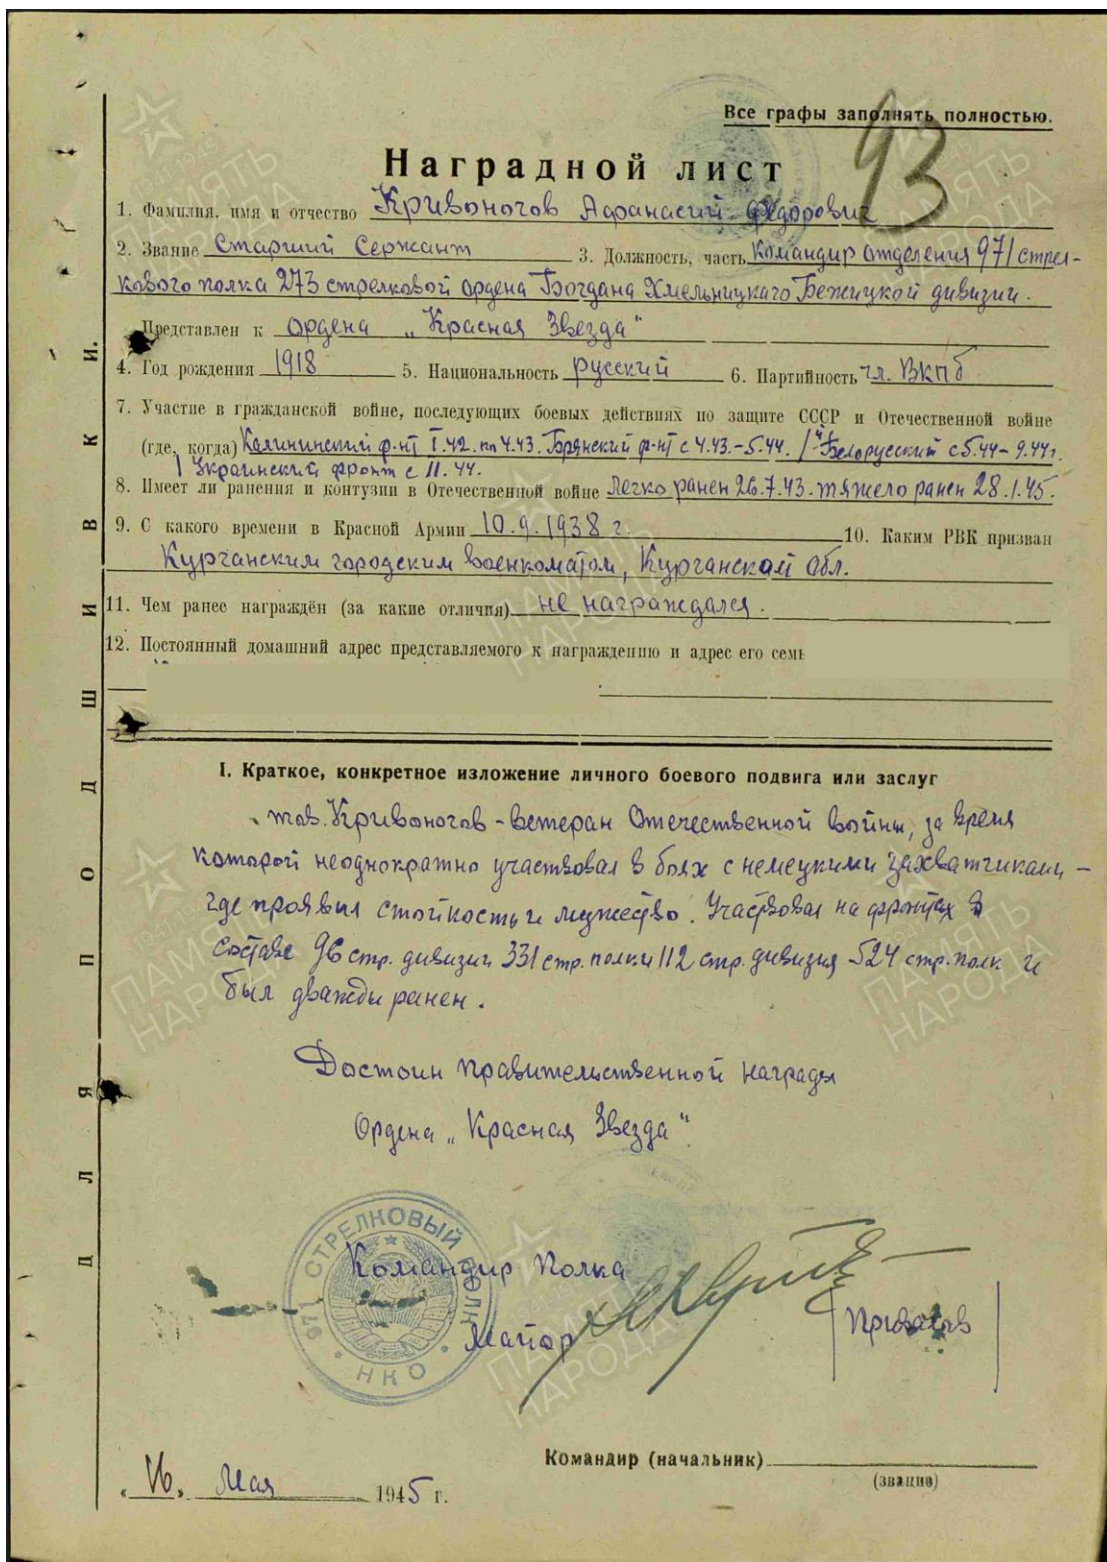 Все графы заполнять полностью.
93
Наградной лист
1. Фамилия, имя и отчество Кривоногов Афанасий Фёдорович
2. Звание Старший Сержант 3. Должность, часть Командир отделения 971 стрел-
кового полка 273 стрелковой ордена Богдана Хмельницкаго Бежицкой дивизии.
Представлен к ордена „Красная Звезда"
4. Год рождения 1918 5. Национальность русский 6. Партийность чл. ВКПб
7. Участие в гражданской войне, последующих боевых действиях по защите СССР и Отечественной войне
(где, когда) Калининский ф-нт I.42. по 4.43. Брянский ф-нт с 4.43.-5.44. 1й Белорусский с 5.44-9.44г.
1 Украинский фронт с 11.44.
8. Имеет ли ранения и контузии в Отечественной войне Легко ранен 26.7.43. тяжело ранен 28.1.45.
9. С какого времени в Красной Армии 10.9.1938 г. 10. Каким РВК призван
Курганским городским военкоматом, Курганской обл.
11. Чем ранее награждён (за какие отличия) не награждался.
12. Постоянный домашний адрес представляемого к награждению и адрес его семь
I. Краткое, конкретное изложение личного боевого подвига или заслуг
тов. Кривоногов - ветеран Отечественной войны, за время
которой неоднократно участвовал в боях с немецкими захватчиками -
где проявил стойкость и мужество. Участвовал на фронтах в
составе 96 стр. дивизии 331 стр. полк и 112 стр. дивизия 524 стр. полк и
был дважды ранен.
Достоин правительственной награды
Ордена „Красная Звезда"
Командир Полка
Майор
971 СТРЕЛКОВЫЙ ПОЛК
НКО
Командир (начальник)
(звание)
„16" Мая 1945 г.
ДЛЯ ПОДШИВКИ.
ПАМЯТЬ НАРОДА